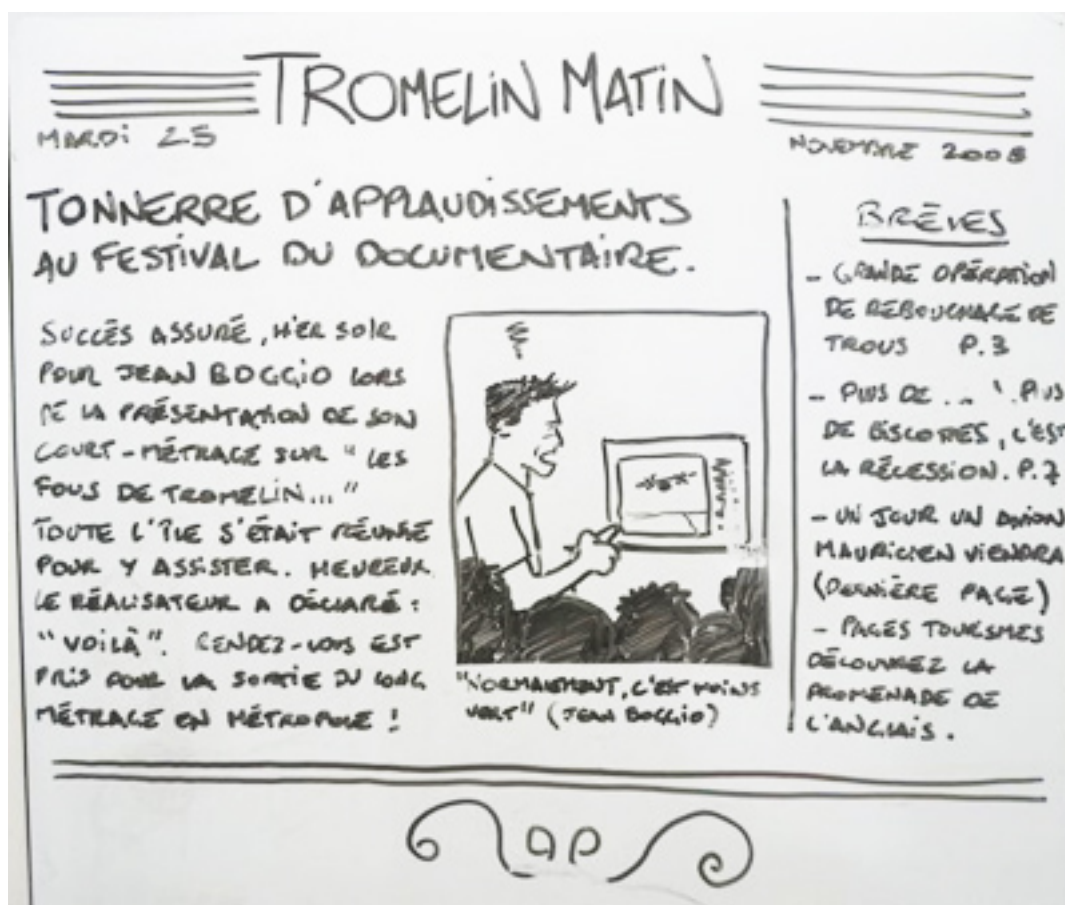 TROMELIN MATIN
MARDI 25
NOVEMBRE 2008
TONNERRE D'APPLAUDISSEMENTS
AU FESTIVAL DU DOCUMENTAIRE.
SUCCÈS ASSURÉ, HIER SOIR
POUR JEAN BOGGIO LORS
DE LA PRÉSENTATION DE SON
COURT-MÉTRAGE SUR "LES
FOUS DE TROMELIN..."
TOUTE L'ÎLE S'ÉTAIT RÉUNIE
POUR Y ASSISTER. HEUREUX
LE RÉALISATEUR A DÉCLARÉ :
"VOILÀ". RENDEZ-VOUS EST
PRIS POUR LA SORTIE DU LONG
MÉTRAGE EN MÉTROPOLE !
"NORMALEMENT, C'EST MOINS
VERT" (JEAN BOGGIO)
BRÈVES
- GRANDE OPÉRATION
DE REBOUCHAGE DE
TROUS P.3
- PLUS DE ... PLUS
DE BISCOTTES, C'EST
LA RÉCESSION. P.7
- UN JOUR UN AVION
MAURICIEN VIENDRA
(DERNIÈRE PAGE)
- PAGES TOURISMES
DÉCOUVREZ LA
PROMENADE DE
L'ANGLAIS.